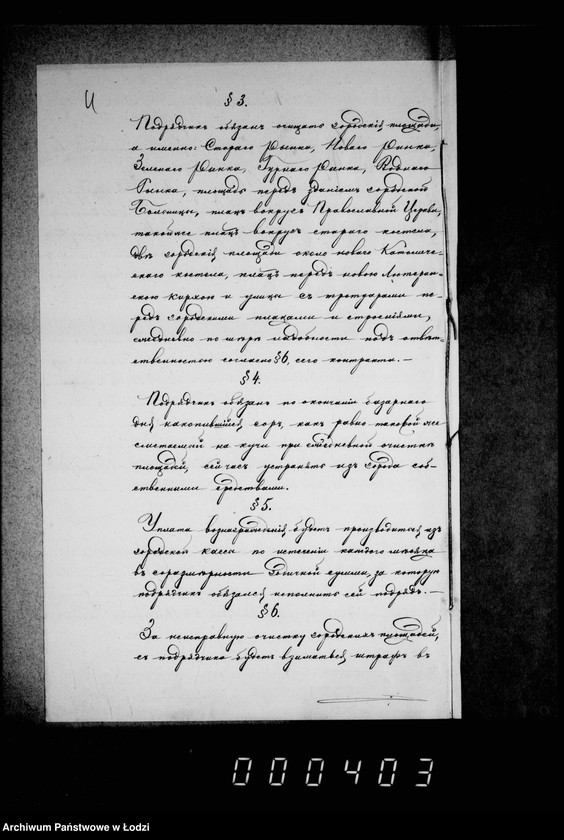 § 3.
Подрядчикъ обязанъ очищать городскія площади,
а именно: Стараго Рынка, Новаго Рынка,
Зеленаго Рынка, Гурнаго Рынка, Воднаго
Рынка, площадь передъ зданіемъ городской
Больницы, плацъ вокругъ Православной Церкви,
таковой же плацъ вокругъ стараго костела,
двѣ городскія площади около новаго Католиче-
скаго костела, плацъ передъ новою Лютеран-
скою кирхою и улицы съ тротуарами пе-
редъ городскими плацами и строеніями,
ежедневно по мѣрѣ надобности подъ отвѣт-
ственностью согласно § 6, сего контракта. —
§ 4.
Подрядчикъ обязанъ по окончаніи базарнаго
дня накопившійся соръ, какъ равно таковой же
сметаемый на кучи при ежедневной очисткѣ
площадей, сейчасъ устранять изъ города соб-
ственными средствами.
§ 5.
Уплата вознагражденія будетъ производиться изъ
городской кассы по истеченіи каждаго мѣсяца
въ соразмѣрности годичной суммы, за которую
подрядчикъ обязался исполнить сей подрядъ. —
§ 6.
За неисправную очистку городскихъ площадей,
съ подрядчика будетъ взиматься штрафъ въ
000403
Archiwum Państwowe w Łodzi